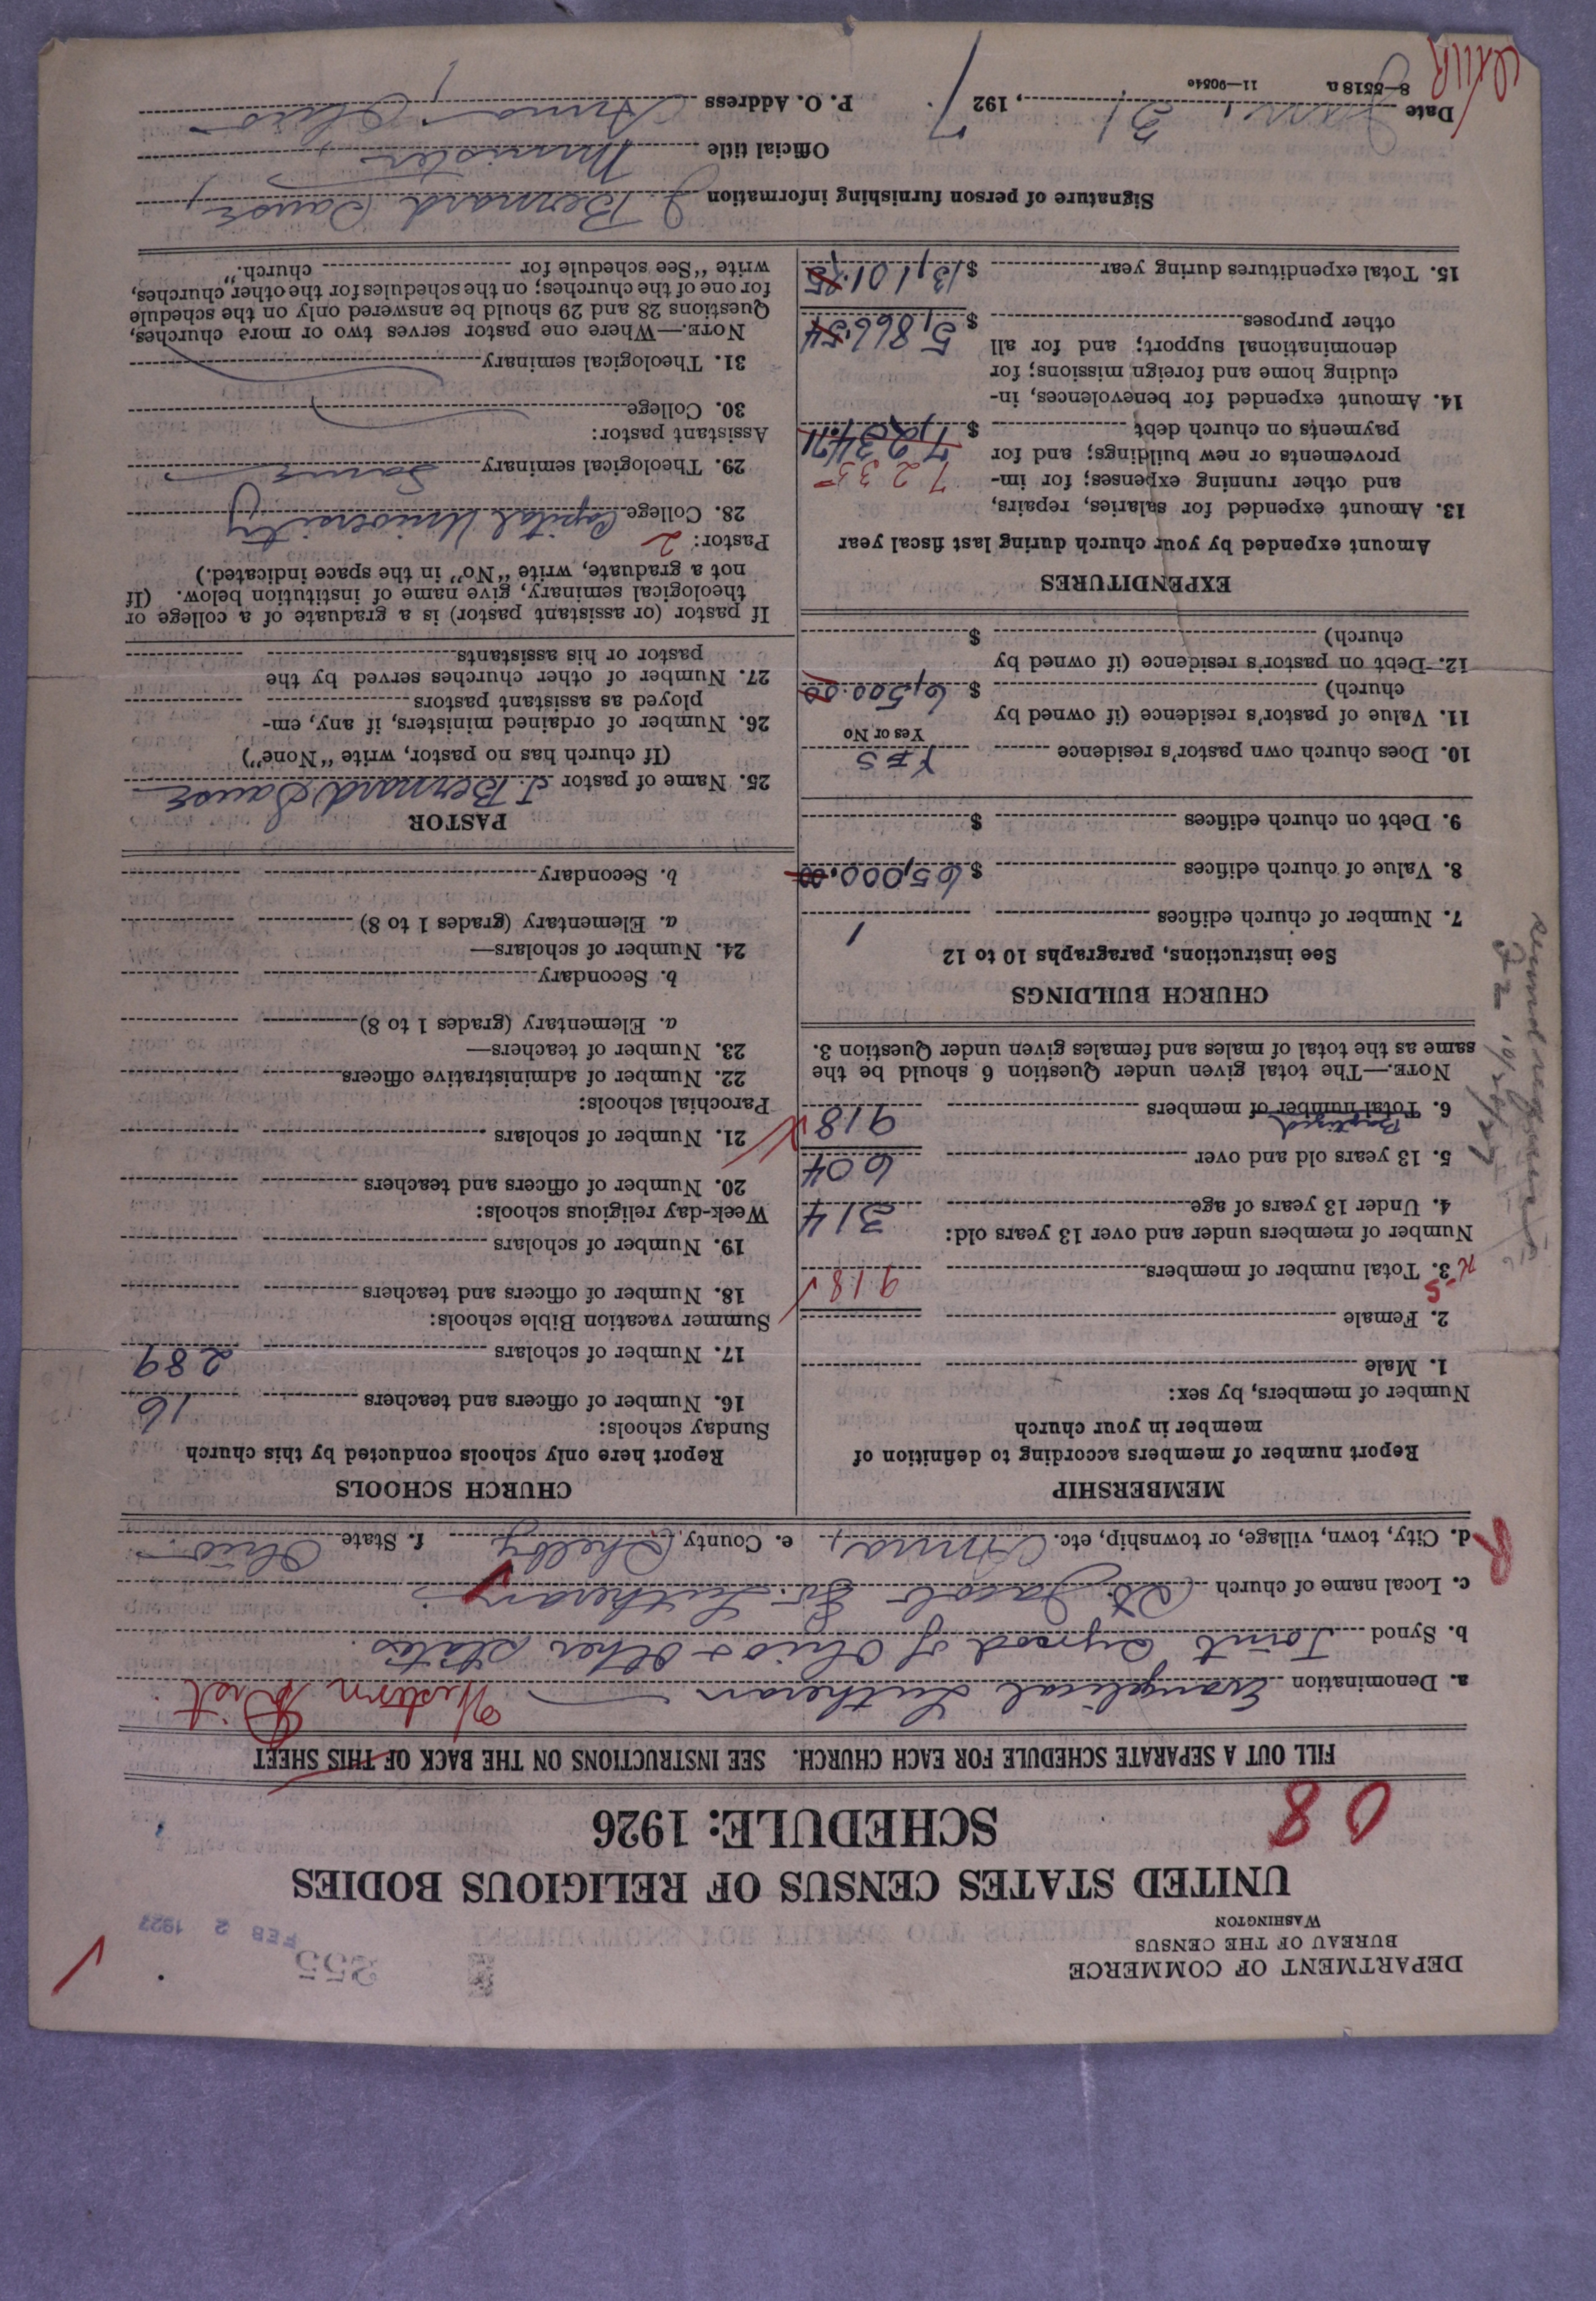 DEPARTMENT OF COMMERCE
BUREAU OF THE CENSUS
WASHINGTON
255
FEB 2 1927
UNITED STATES CENSUS OF RELIGIOUS BODIES
SCHEDULE: 1926
08
FILL OUT A SEPARATE SCHEDULE FOR EACH CHURCH. SEE INSTRUCTIONS ON THE BACK OF THIS SHEET
a. Denomination Evangelical Lutheran Western Dist.
b. Synod Joint Synod of Ohio & Other States.
c. Local name of church St. Jacob Ev. Lutheran
d. City, town, village, or township, etc. Anna, e. County Shelby f. State Ohio
R
MEMBERSHIP
Report number of members according to definition of
member in your church
Number of members, by sex:
1. Male
2. Female
3. Total number of members 918
Number of members under and over 13 years old:
4. Under 13 years of age 314
5. 13 years old and over 604
Baptized
6. Total number of members 918
NOTE.—The total given under Question 6 should be the
same as the total of males and females given under Question 3.
CHURCH BUILDINGS
See instructions, paragraphs 10 to 12
7. Number of church edifices 1
8. Value of church edifices $ 65,000.00
9. Debt on church edifices $
10. Does church own pastor's residence YES
Yes or No
11. Value of pastor's residence (if owned by
church) $ 6,500.00
12. Debt on pastor's residence (if owned by
church) $
EXPENDITURES
Amount expended by your church during last fiscal year
13. Amount expended for salaries, repairs,
and other running expenses; for im- 7235
provements or new buildings; and for
payments on church debt $ 7,234.71
14. Amount expended for benevolences, in-
cluding home and foreign missions; for
denominational support; and for all
other purposes $ 5,866.54
15. Total expenditures during year $ 13,101.25
CHURCH SCHOOLS
Report here only schools conducted by this church
Sunday schools:
16. Number of officers and teachers 16
17. Number of scholars 289
Summer vacation Bible schools:
18. Number of officers and teachers
19. Number of scholars
Week-day religious schools:
20. Number of officers and teachers
21. Number of scholars
Parochial schools:
22. Number of administrative officers
23. Number of teachers—
a. Elementary (grades 1 to 8)
b. Secondary
24. Number of scholars—
a. Elementary (grades 1 to 8)
b. Secondary
PASTOR
25. Name of pastor J. Bernard
(If church has no pastor, write "None")
26. Number of ordained ministers, if any, em-
ployed as assistant pastors
27. Number of other churches served by the
pastor or his assistants
If pastor (or assistant pastor) is a graduate of a college or
theological seminary, give name of institution below. (If
not a graduate, write "No" in the space indicated.)
Pastor: 2
28. College Capital University
29. Theological seminary Same
Assistant pastor:
30. College
31. Theological seminary
NOTE.—Where one pastor serves two or more churches,
Questions 28 and 29 should be answered only on the schedule
for one of the churches; on the schedules for the other churches,
write "See schedule for church."
Signature of person furnishing information J. Bernard
Official title Minister
Date Jan. 31, 1927. P. O. Address Anna, Ohio
8—5518a 11—9054c